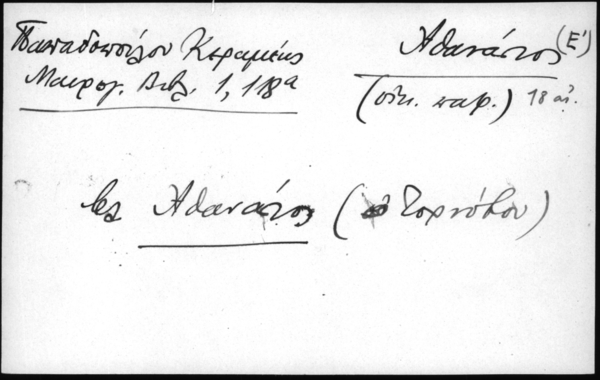 Παπαδοπούλου Κεραμέως
Μαυρογ. Βιβλ. 1, 118α
Ἀθανάσιος (Ε΄)
(οἰκ. πατρ.) 18 αἰ.
βλ Ἀθανάσιος (Τορνόβου)